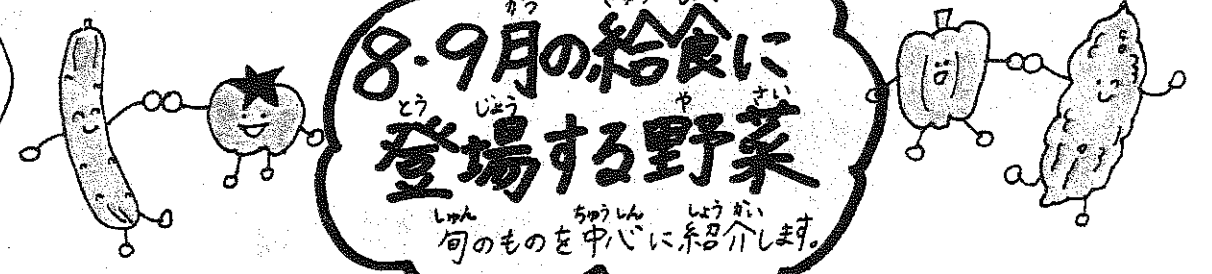 8・9月の給食に
登場する野菜
旬のものを中心に紹介します。